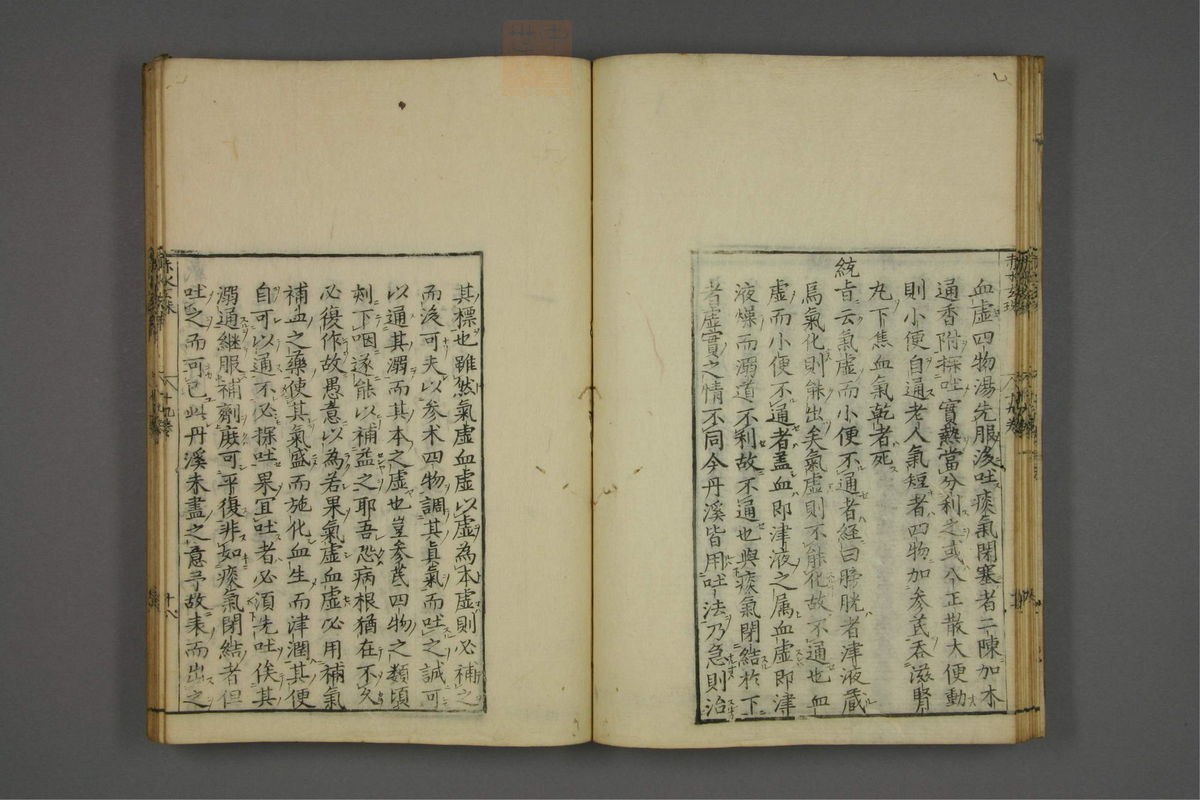 血虛四物湯先服後吐痰氣閉塞者二陳加木
通香附探吐實熱當分利之或八正散大便動
則小便自通老人氣短者四物加参茋吞滋腎
丸下焦血氣乾者死
統旨云氣虛而小便不通者経曰膀胱者津液藏
焉氣化則能出矣氣虛則不能化故不通也血
虛而小便不通者蓋血即津液之属血虛即津
液燥而溺道不利故不通也與痰氣閉結於下
者虛實之情不同今丹溪皆用吐法乃急則治
其標也雖然氣虛血虛以虛為本虛則必補之
而後可夫以参术四物調其真氣而吐之誠可
以通其溺而其本之虛也豈参茋四物之類頃
刻下咽遂能以補益之耶吾恐病根猶在不久
必復作故愚意以為若果氣虛血虛必用補氣
補血之藥使其氣盛而施化血生而津潤其便
自可以通不必探吐果宜吐者必須先吐俟其
溺通継服補劑庶可平復非如痰氣閉結者但
吐之而可已此丹溪未盡之意予故表而出之
赤水玄珠
十九卷
十八